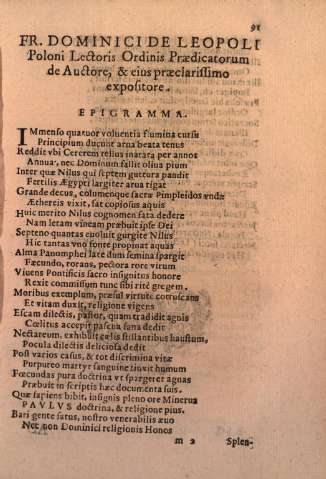 91
FR. DOMINICI DE LEOPOLI
Poloni Lectoris Ordinis Prædicatorum
de Auctore, & eius præclarissimo
expositore.
EPIGRAMMA.
IMmenso quatuor voluentia flumina cursu
Principium ducunt arua beata tenus
Reddit vbi Cererem tellus inarata per annos
Annua, nec Dominum fallit oliua pium
Inter quæ Nilus qui septem guttura pandit
Fertilis Ægypti largiter arua rigat
Grande decus, columenque sacræ Pimpleidos vndæ
Æthereis vixit, sat copiosus aquis
Huic merito Nilus cognomen fata dedere
Nam letam vineam præbuit ipse Dei
Septeno quantas euoluit gurgite Nilus
Hic tantas vno fonte propinat aquas
Alma Panomphei late dum semina spargit
Fæcundo, rorans, pectora rore virum
Viuens Pontificis sacro insignitus honore
Rexit commissum tunc sibi ritè gregem.
Moribus exemplum, præsul virtute coruscans
Et vitam duxit, religione vigens
Escam dilectis, pastor, quam tradidit agnis
Cœlitus accepit pascua sana dedit
Nectareum, exhibuit cælis stillantibus haustum,
Pocula dilectis deliciosa dedit
Post varios casus, & tot discrimina vitæ
Purpureo martyr sanguine tinxit humum
Fœcundas pura doctrina vt spargeret agnas
Præbuit in scriptis hæc documenta suis.
Quæ sapiens bibit, insignis pleno ore Minerua
PAVLVS doctrina, & religione pius.
Bari gente satus, nostro venerabilis æuo
Nec non Dominici religionis Honos
m 2 Splen-